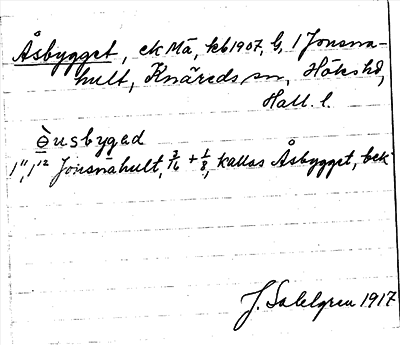 Åsbygget, ek Mä, kb 1907, G, 1 Jonsna-
hult, Knäreds sn, Höks hd,
Hall. l.
òusbygəd
1", 1¹² Jonsnahult, 3/16 + 1/8, kallas Åsbygget, bek
J. Sahlgren 1917